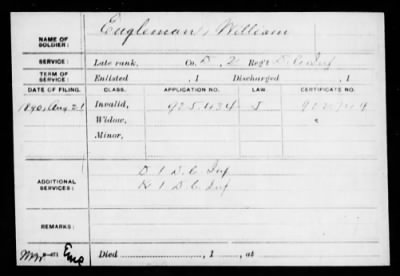 NAME OF SOLDIER: Eugleman, William
SERVICE: Late rank, Co. D, 2 Reg't D.C. Inf
TERM OF SERVICE: Enlisted , 1 Discharged , 1
DATE OF FILING. CLASS. APPLICATION NO. LAW. CERTIFICATE NO.
1890, Aug. 21 Invalid, 925.434 J
Widow,
Minor,
ADDITIONAL SERVICES: D 1 D.C. Inf
K 1 D.C. Inf
REMARKS:
Died , 1 , at